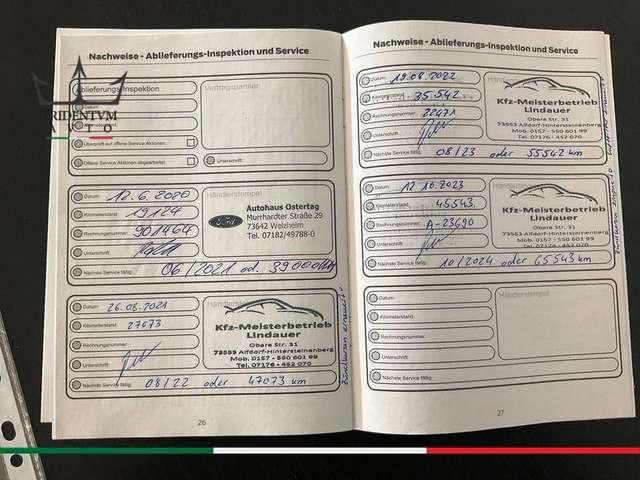 Nachweise - Ablieferungs-Inspektion und Service
Ablieferungs-Inspektion
Vertragspartner
Datum:
Überprüft auf offene Service Aktionen
Offene Service Aktionen abgearbeitet.
Unterschrift
TRIDENTVM
AUTO
Datum: 12.6.2020
Kilometerstand 19124
Rechnungsnummer: 901464
Unterschrift
Nächste Service fällig: 06/2021 od. 39000 km
Händlerstempel
Ford
Autohaus Ostertag
Murrhardter Straße 29
73642 Welzheim
Tel. 07182/49788-0
Datum: 26.08.2021
Kilometerstand 27073
Rechnungsnummer:
Unterschrift
Nächste Service fällig: 08/22 oder 47073 km
Kfz-Meisterbetrieb
Lindauer
Obere Str. 31
73553 Alfdorf-Hintersteinenberg
Mob. 0157 - 550 601 99
Tel. 07176 - 452 070
26
Nachweise - Ablieferungs-Inspektion und Service
Datum: 19.08.2022
Kilometerstand 35.542
Rechnungsnummer: 22471
Unterschrift
Nächste Service fällig: 08/23 oder 55542 km
Kfz-Meisterbetrieb
Lindauer
Obere Str. 31
73553 Alfdorf-Hintersteinenberg
Mob. 0157 - 550 601 99
Tel. 07176 - 452 070
Datum: 12.10.2023
Kilometerstand 45543
Rechnungsnummer: A-23690
Unterschrift
Nächste Service fällig: 10/2024 oder 65543 km
Kfz-Meisterbetrieb
Lindauer
Obere Str. 31
73553 Alfdorf-Hintersteinenberg
Mob. 0157 - 550 601 99
Tel. 07176 - 452 070
Datum:
Kilometerstand:
Rechnungsnummer:
Unterschrift
Nächste Service fällig:
Händlerstempel
27